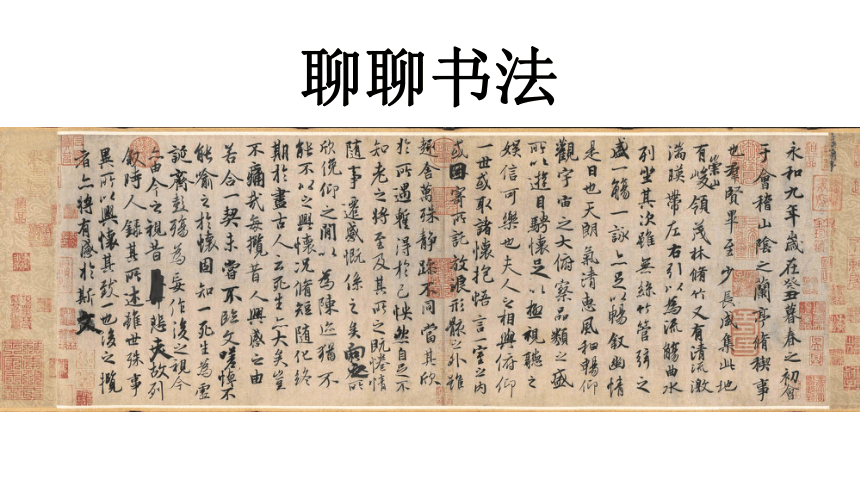 聊聊书法
永和九年歲在癸丑暮春之初會
于會稽山陰之蘭亭脩稧事
也群賢畢至少長咸集此地
有崇山峻領茂林脩竹又有清流激
湍暎帶左右引以為流觴曲水
列坐其次雖無絲竹管弦之
盛一觴一詠亦足以暢敘幽情
是日也天朗氣清惠風和暢仰
觀宇宙之大俯察品類之盛
所以遊目騁懷足以極視聽之
娛信可樂也夫人之相與俯仰
一世或取諸懷抱悟言一室之內
或因寄所託放浪形骸之外雖
趣舍萬殊靜躁不同當其欣
於所遇暫得於己快然自足不
知老之將至及其所之既惓情
隨事遷感慨係之矣向之所
欣俛仰之閒以為陳迹猶不
能不以之興懷況脩短隨化終
期於盡古人云死生亦大矣豈
不痛哉每攬昔人興感之由
若合一契未嘗不臨文嗟悼不
能喻之於懷固知一死生為虛
誕齊彭殤為妄作後之視今
亦由今之視昔悲夫故列
敘時人錄其所述雖世殊事
異所以興懷其致一也後之攬
者亦將有感於斯文